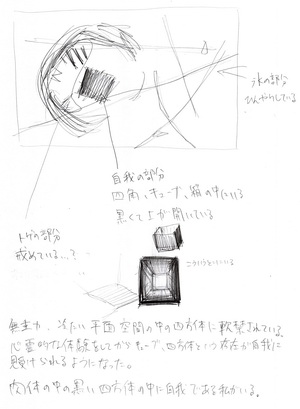 水の部分
ひんやりしている
自我の部分
四角、キューブ、箱の中にいる
黒くて上が開いている
トゲの部分
戒めている…?
こういうところにいる
無重力、冷たい平面空間の中の四方体に軟禁されている。
心霊的な体験をしてからキューブ、四方体という存在が自我に
懸けられるようになった。
肉体の中の黒い四方体の中に自我である私がいる。